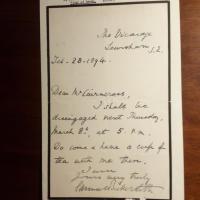 The Vicarage
Lewisham,
S.E.
Feb. 28. 1894.
Dear Mr Cairncross,
I shall be
disengaged next Thursday,
March 8th, at 5 p.m.
Do come & have a cup of
tea with me then.
I am
Yours very truly